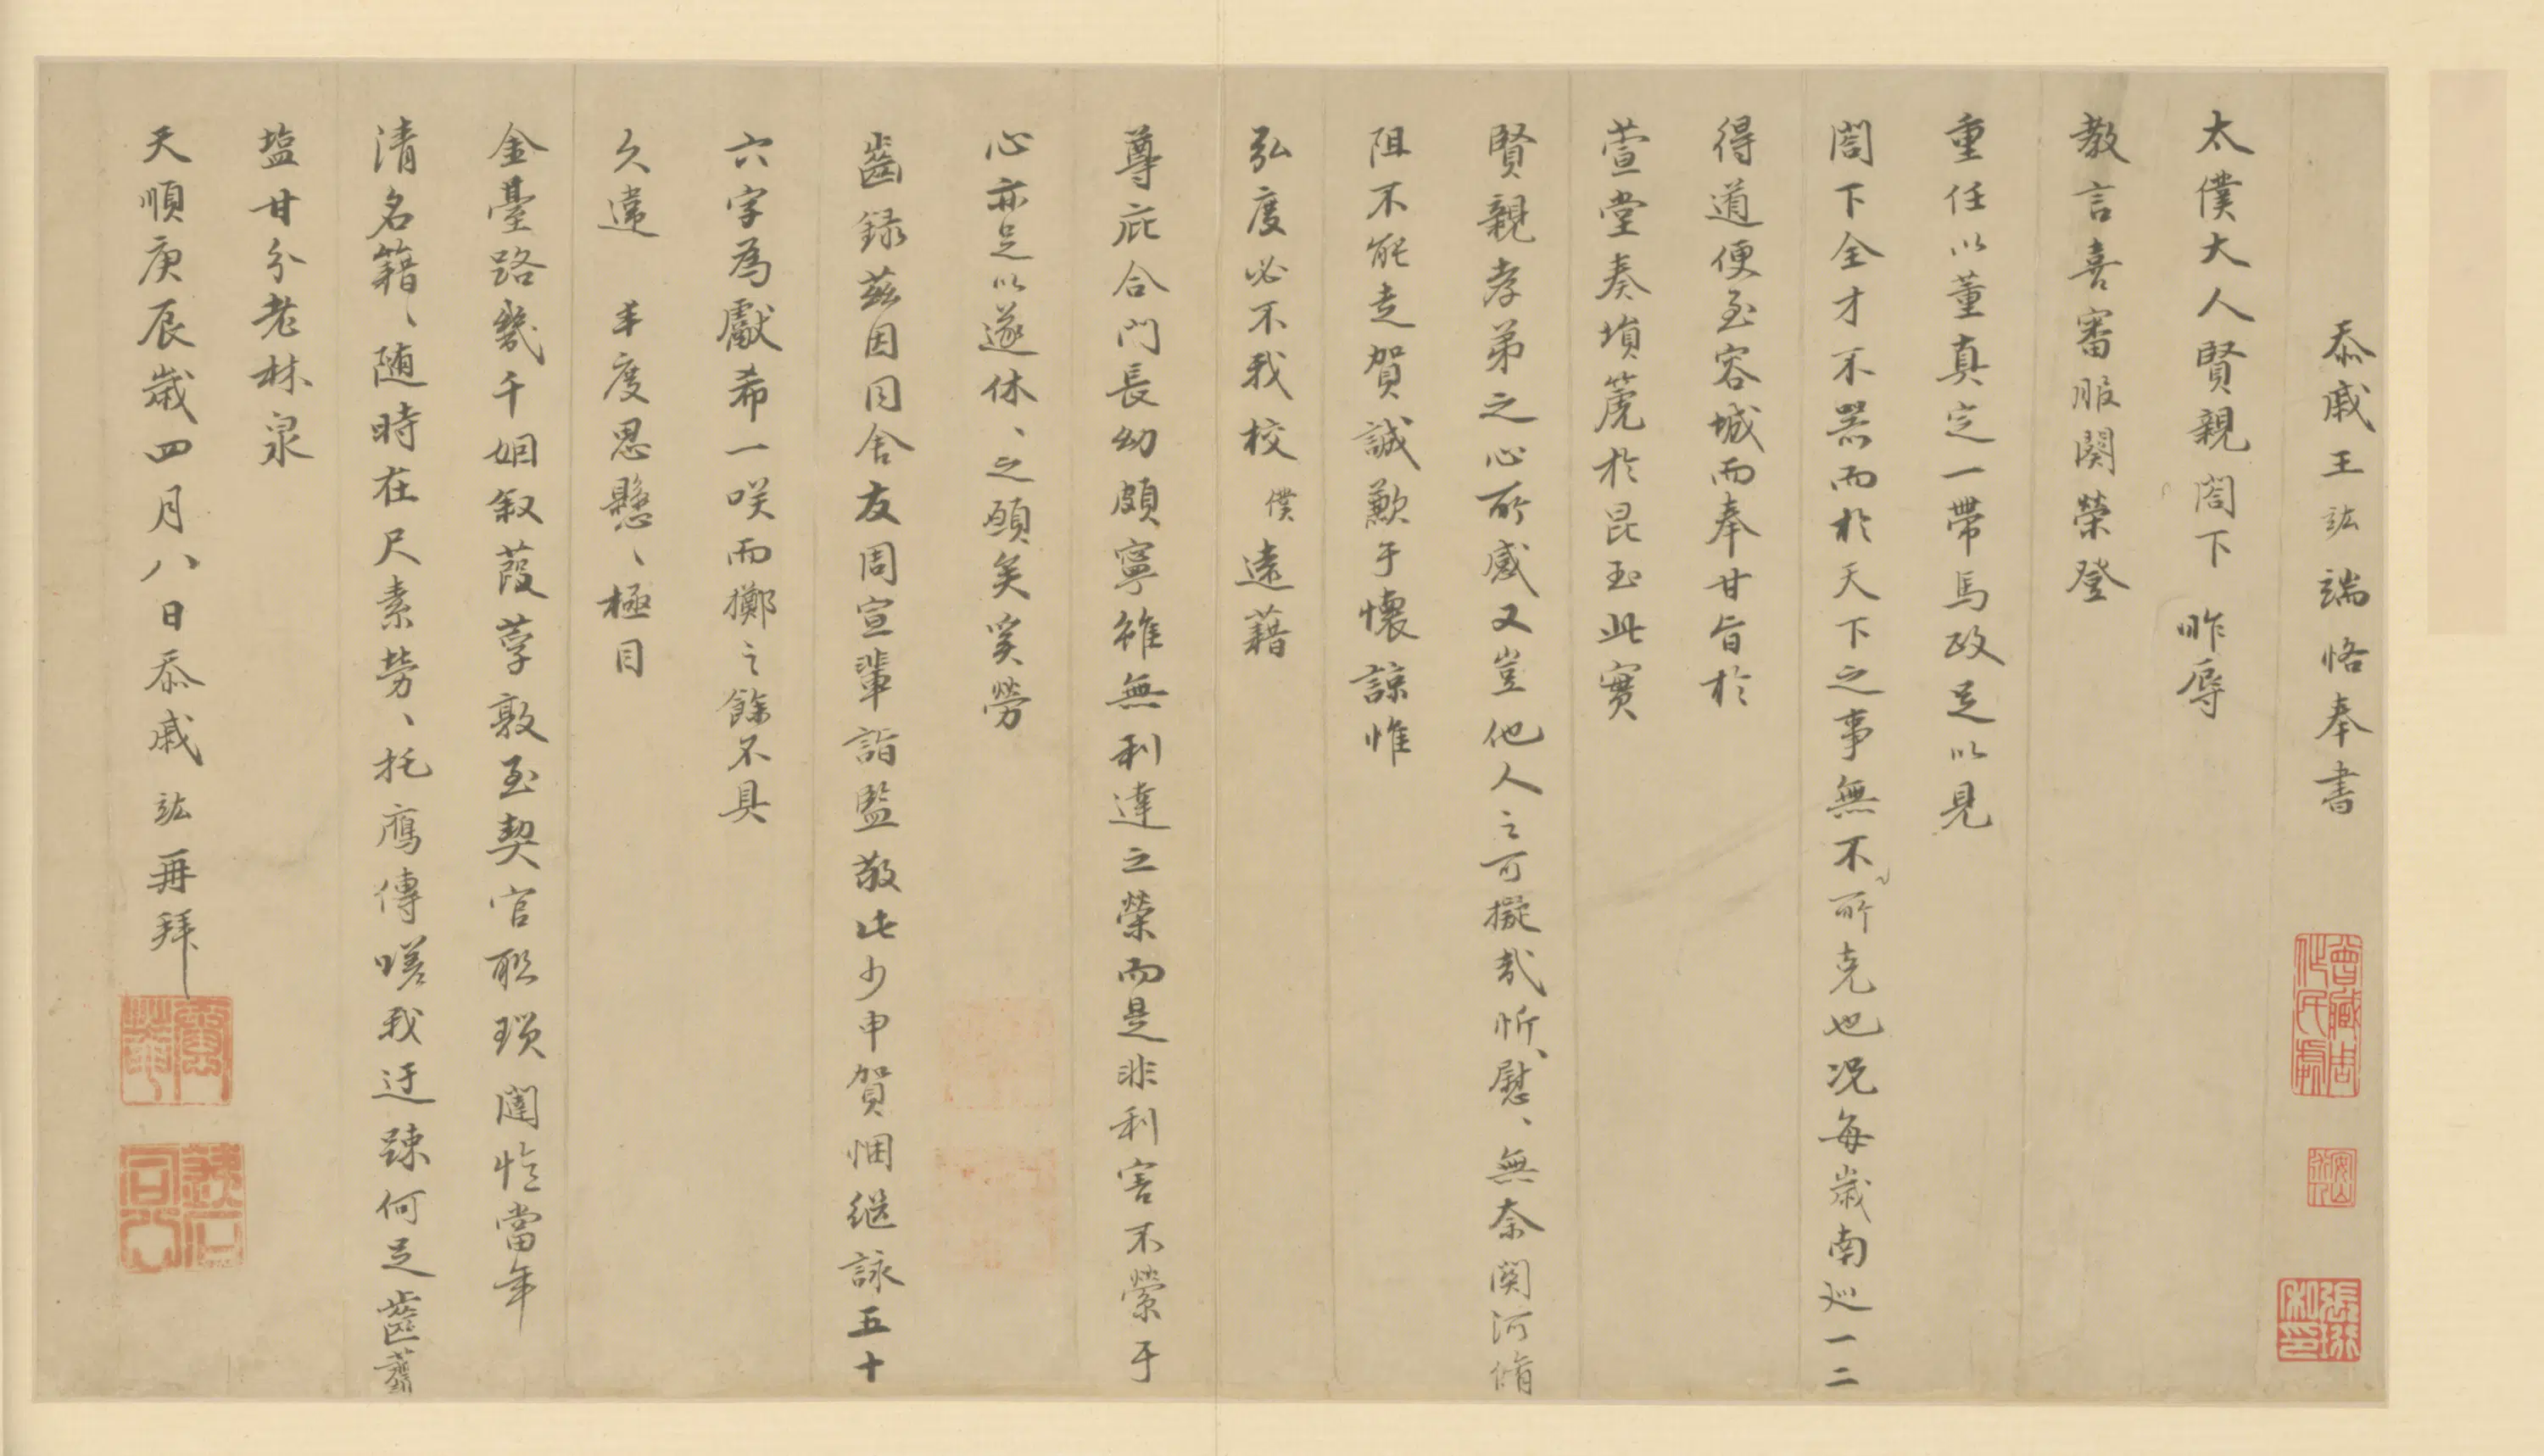 忝戚王竑端恪奉書
太僕大人賢親閤下　昨辱
教言喜審服闋榮登
重任以董真定一帶馬政足以見
閤下全才不器而於天下之事無不所克也况每歲南巡一二
得道便至容城而奉甘旨於
萱堂奏塤篪於昆玉此實
賢親孝弟之心所感又豈他人之可擬哉忻、慰、無奈関河脩
阻不能走賀誠歉于懷諒惟
弘度必不我校　僕遠藉
尊庇合門長幼頗寧雖無利達之榮而是非利害不縈于
心亦足以遂休、之願矣奚勞
齒録茲因同舍友周宣輩詣監敬此少申賀悃継詠五十
六字為獻希一咲而擲之餘不具
久違　丰度思懸、極目
金臺路幾千姻叙葭莩敦至契官聀瑣闥憶當年
清名籍、随時在尺素勞、托鴈傳嗟我迂踈何足齒虀
塩甘分老林泉
天順庚辰歲四月八日忝戚竑再拜